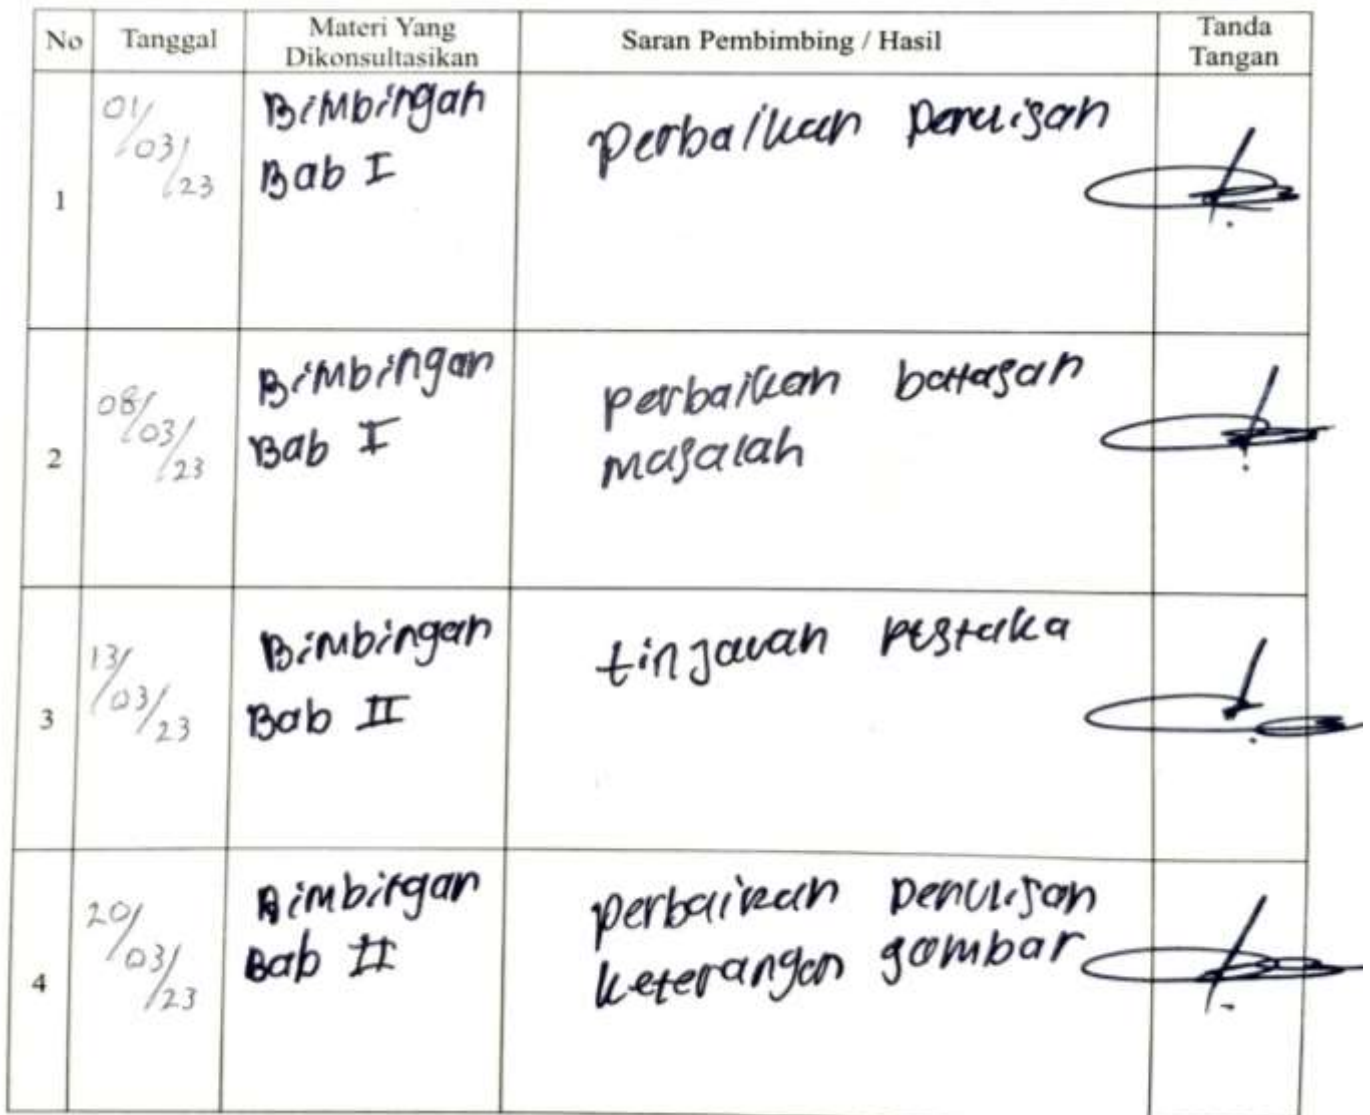 No Tanggal Materi Yang Dikonsultasikan Saran Pembimbing / Hasil Tanda Tangan
1 01/03/23 Bimbingan Bab I perbaikan penulisan
2 08/03/23 Bimbingan Bab I perbaikan batasan masalah
3 13/03/23 Bimbingan Bab II tinjauan pustaka
4 20/03/23 Bimbingan Bab II perbaikan penulisan keterangan gambar